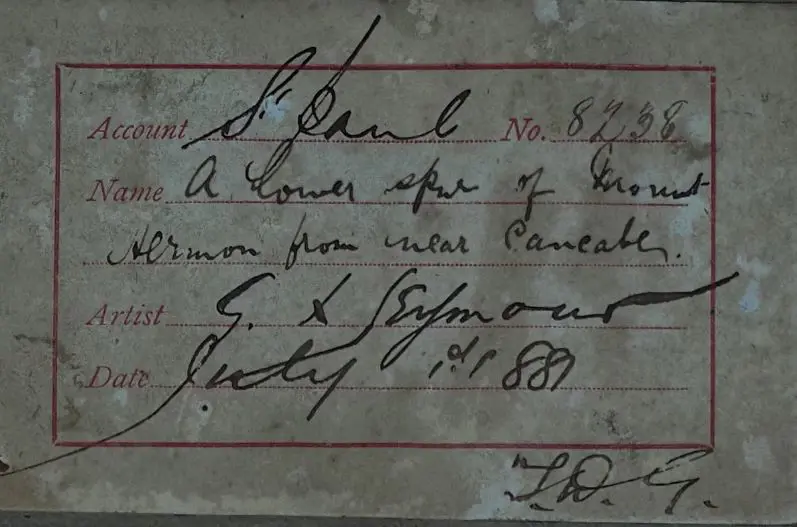 Account St Paul No. 8238
Name A Lower spur of Mount
Hermon from near
Artist G. L Seymour
Date July 1st 1881
F.D.G.